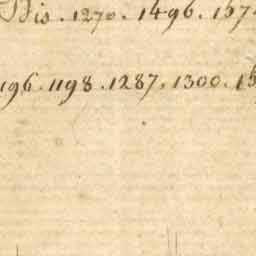 Dis . 1270 . 1496 . 157
196 . 1198 . 1287 . 1300 . 15